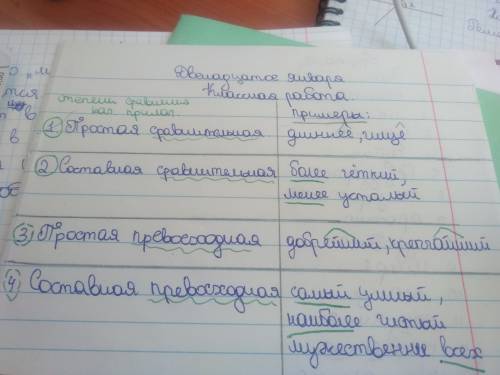 Двенадцатое января
Классная работа.
степени сравнения
кач прилаг.
примеры:
1 Простая сравнительная длиннее, чище
2 Составная сравнительная более чёткий,
менее усталый
3) Простая превосходная добрейший, кратчайший
4) Составная превосходная самый умный,
наиболее чистый
мужественнее всех